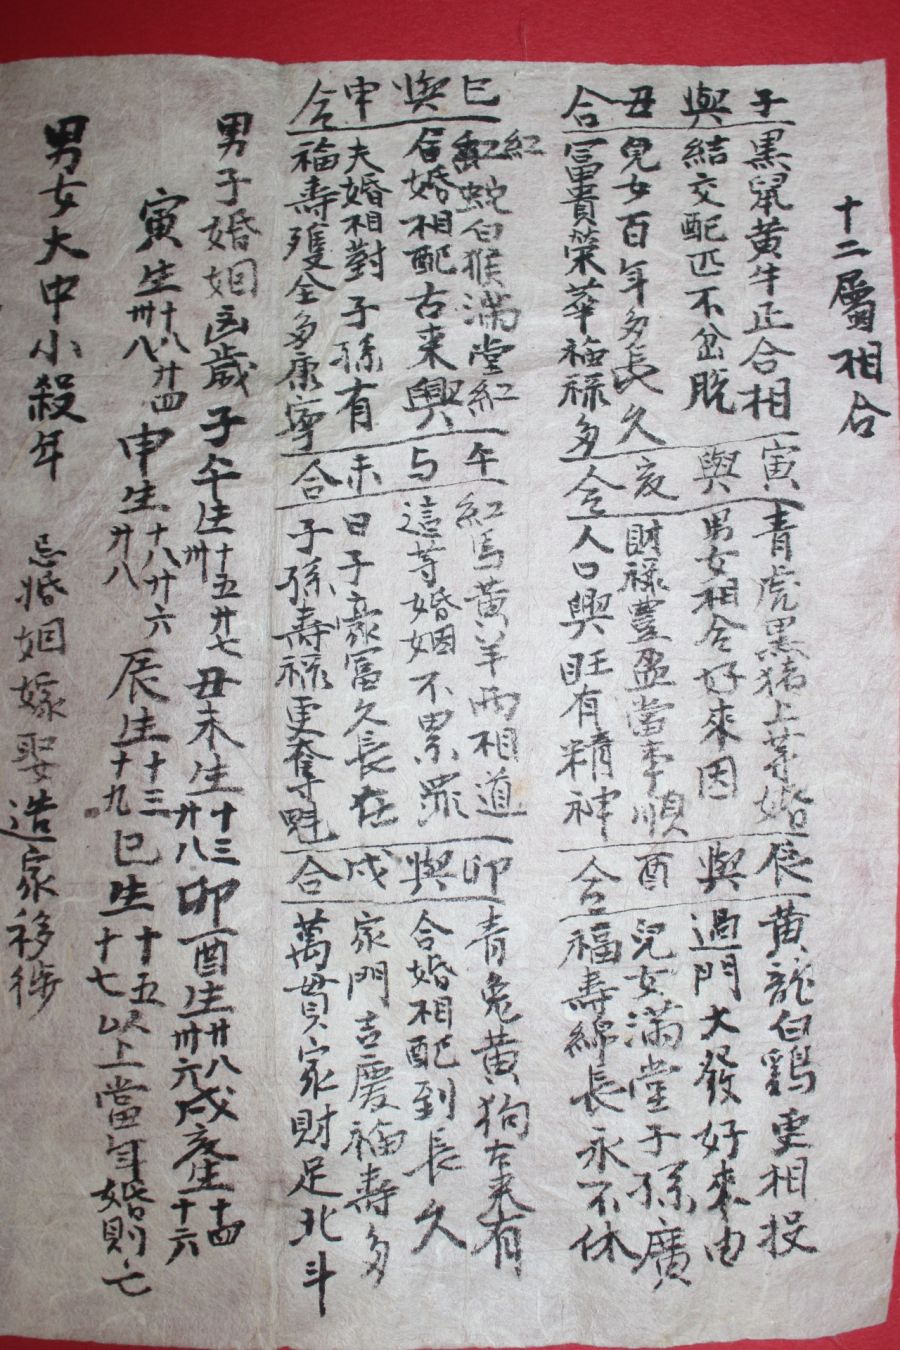 十二屬相合
子與丑合
黑鼠黄牛正合相
結交配匹不岔脫
兒女百年多長久
富貴荣華福禄多
寅與亥合
青虎黑猪上等婚
男女相合好來因
財禄豐盈當孝順
人口興旺有精神
辰與酉合
黄龍白鷄更相投
過門大發好來由
兒女滿堂子孫廣
福寿綿長永不休
巳與申合
紅蛇白猴滿堂紅
合婚相配古来興
夫婚相對子孫有
福壽雙全多康寧
午与未合
紅馬黄羊兩相道
這等婚姻不累罪
日子豪富久長在
子孫寿禄更奪魁
卯與戌合
青兔黄狗古来有
合婚相配到長久
家門吉慶福寿多
萬貫家財足北斗
男子婚姻凶歲 子午生十五廿七卅 丑未生十三廿八 卯酉生廿八卅六 戌亥生十四十六
寅生十八廿四卅八 申生十八廿六廿八 辰生十三十九 巳生十五十七 以上當年婚則亡
男女大中小殺年 忌婚姻嫁娶造家移徙